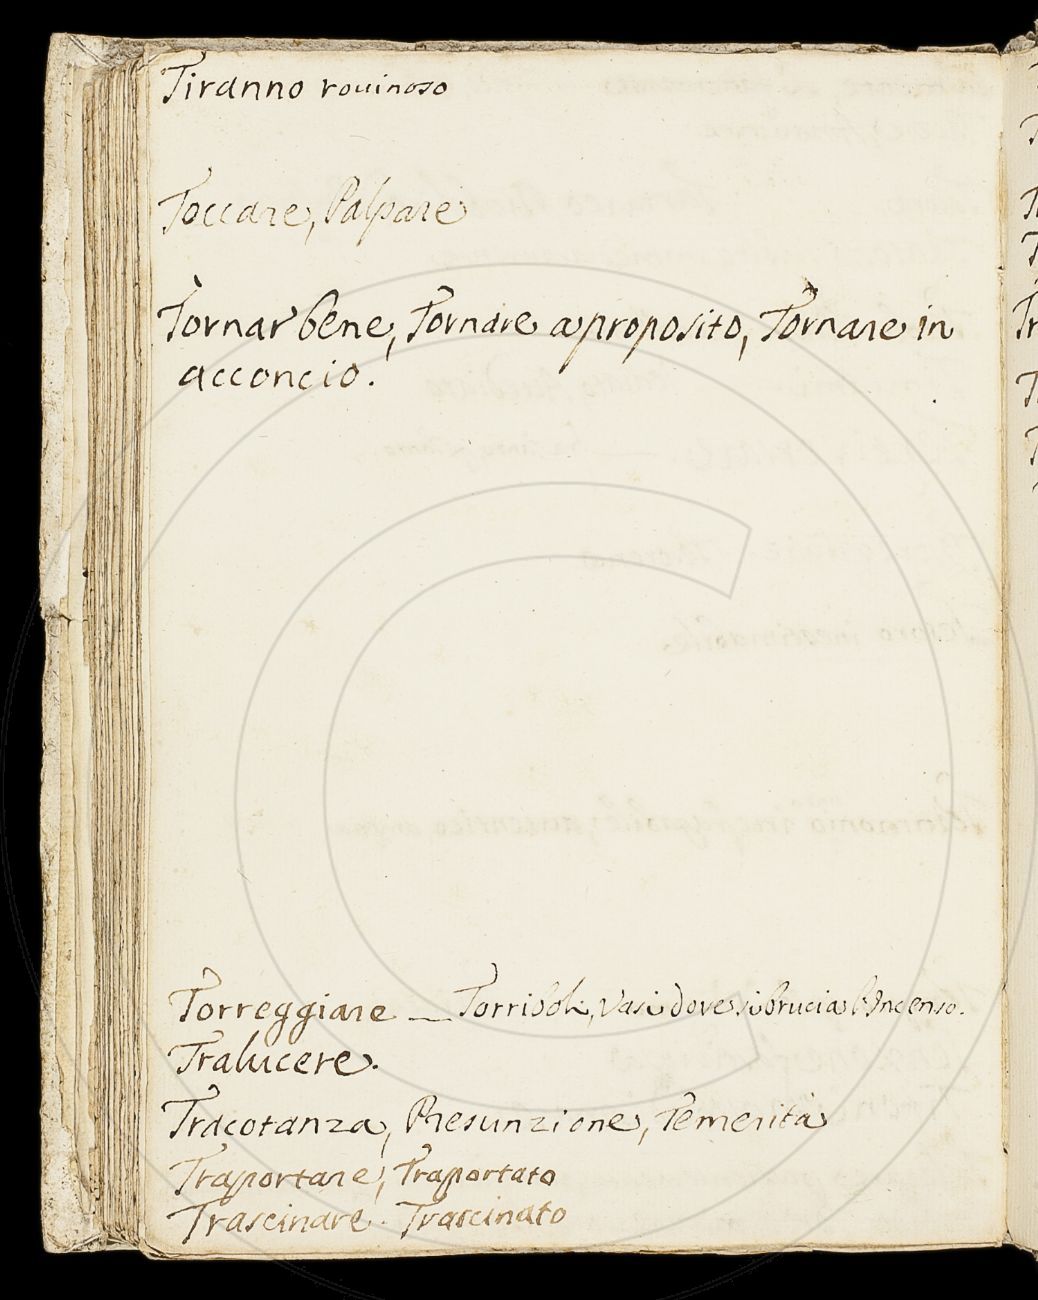 Tiranno rouinoso
Toccare, Palpare
Tornar bene, Tornare a proposito, Tornare in
acconcio.
Torreggiare — Torriboli, Vasi dove si brucia l'Incenso.
Tralucere.
Tracotanza, Presunzione, Temerità
Traportare, Traportato
Trascinare. Trascinato